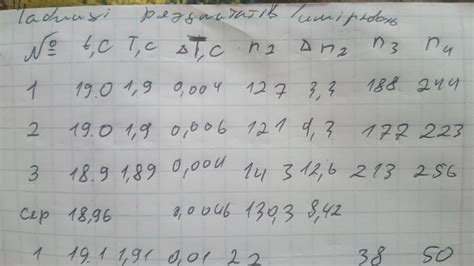 результатів
№ t,c T,c ΔT,c n2 Δn2 n3 n4
1 19.0 1,9 0,004 127 3,3 188 244
2 19.0 1,9 0,006 121 9,3 177 223
3 18.9 1,89 0,004 143 12,6 213 256
сер 18,96 0,0046 130,3 8,42
1 19.1 1,91 0,01 22 38 50